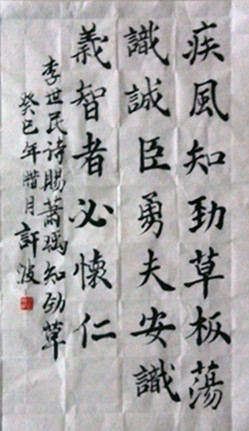 疾風知勁草板蕩
識誠臣勇夫安識
義智者必懷仁
李世民诗賜蕭瑀知劲草
癸巳年腊月許波